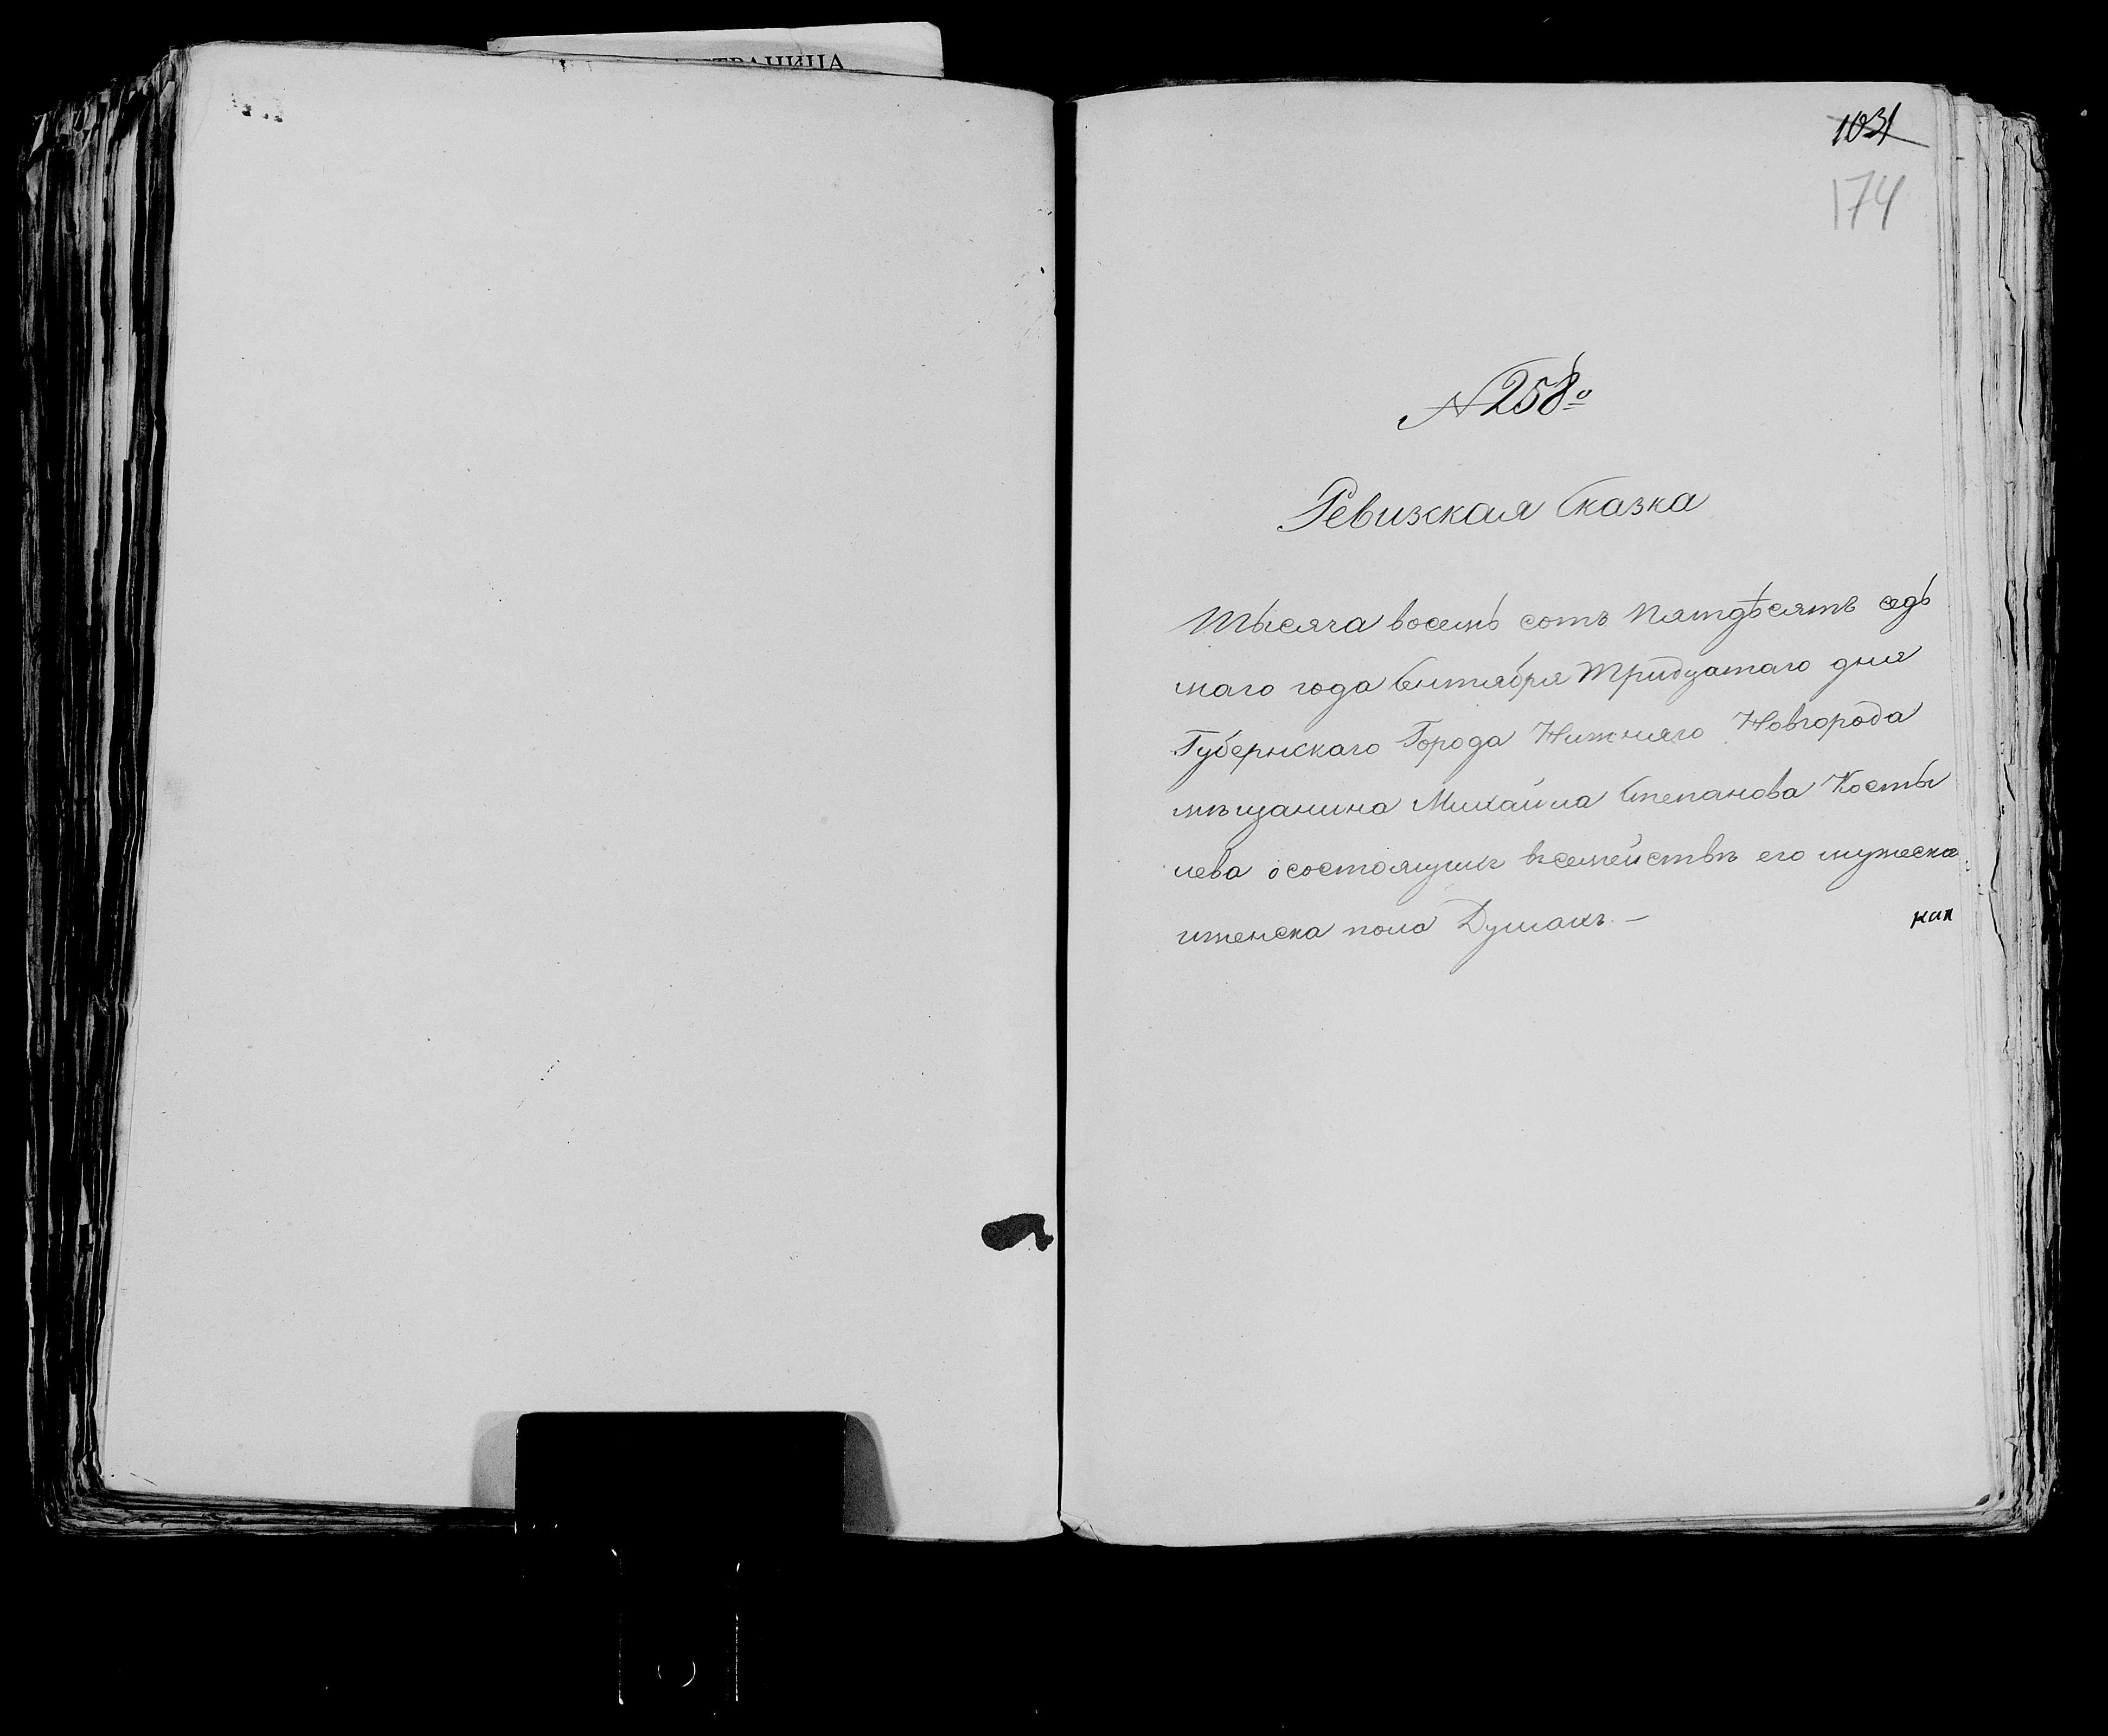 СТРАНИЦА
1031
174
№ 258º
Ревизская Сказка
Тысяча восемь сотъ пятдѣсятъ седь
маго года Сентября тридцатаго дня
Губернскаго Города Нижняго Новгорода
мѣщанина Михайла Степанова Косты
лева осостоящихъ всемействѣ его мужеска
иженска пола Душахъ. —